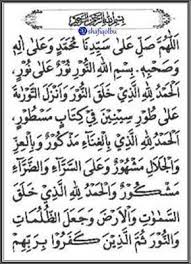 بِسْمِ اللهِ الرَّحْمٰنِ الرَّحِيْمِ
shafiqolbu
اَللّٰهُمَّ صَلِّ عَلٰى سَيِّدِنَا مُحَمَّدٍ وَعَلٰى اٰلِهِ
وَصَحْبِهِ. بِسْمِ اللهِ النُّوْرِ نُوْرٌ عَلٰى نُوْرٍ،
اَلْحَمْدُ لِلّٰهِ الَّذِيْ خَلَقَ النُّوْرَ وَاَنْزَلَ التَّوْرٰىةَ
عَلٰى طُوْرِ سِيْنِيْنَ فِيْ كِتَابٍ مَسْطُوْرٍ،
اَلْحَمْدُ لِلّٰهِ الَّذِيْ بِالْغِنَاءِ مَذْكُوْرٌ وَبِالْعِزِّ
وَالْجَلَالِ مَشْهُوْرٌ وَعَلَى السَّرَّاءِ وَالضَّرَّاءِ
مَشْكُوْرٌ وَالْحَمْدُ لِلّٰهِ الَّذِيْ خَلَقَ
السَّمٰوٰتِ وَالْاَرْضَ وَجَعَلَ الظُّلُمَاتِ
وَالنُّوْرَ ثُمَّ الَّذِيْنَ كَفَرُوْا بِرَبِّهِمْ